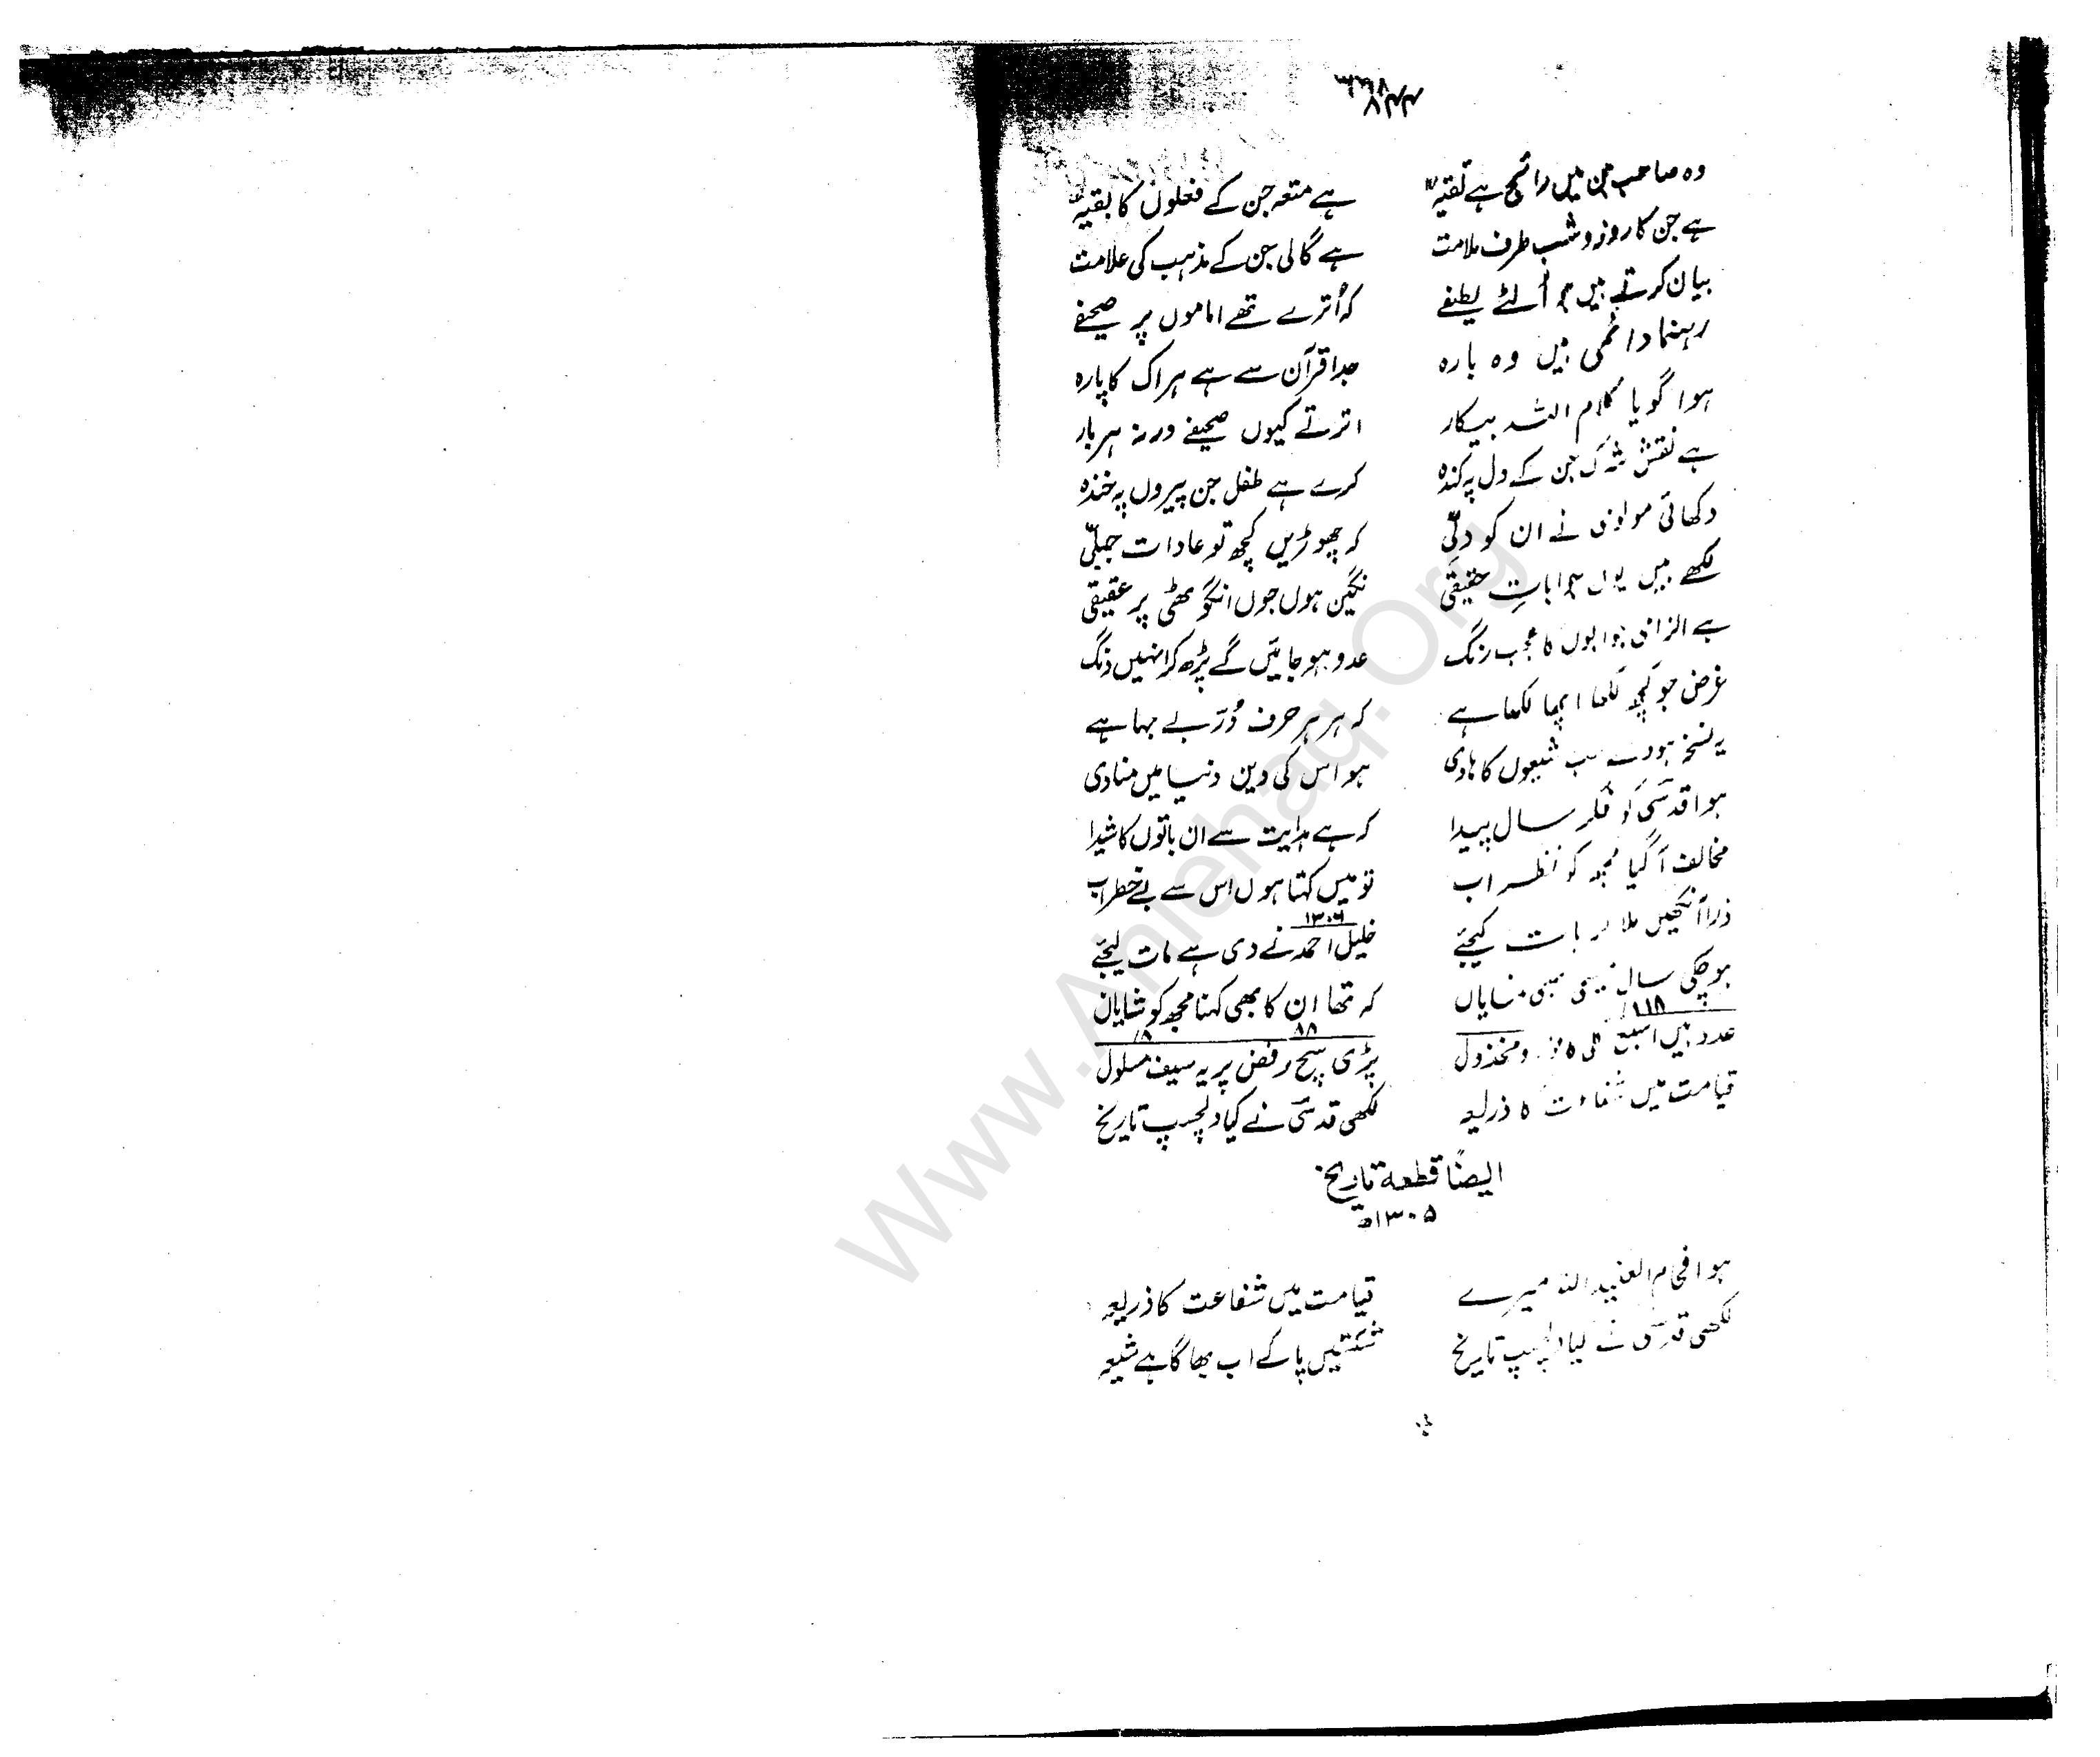 وہ صاحب جن میں رائج ہے تقیہ ہے متعہ جن کے فعلوں کا بقیہ
ہے جن کا روز و شب طرف ملامت ہے گالی جن کے مذہب کی علامت
بیان کرتے ہیں جو اُلٹے لطیفے کہ اُترے تھے اماموں پر صحیفے
رہنما دائمی ہیں وہ بارہ جدا قرآن سے ہے ہر اک کا پارہ
ہوا گویا کلام اللہ بیکار اترتے کیوں صحیفے ورنہ ہر بار
ہے نقش شرک جن کے دل پہ کندہ کرے ہے طفل جن پیروں پہ خندہ
دکھائی مولوی نے ان کو دلّی کہ چھوڑیں کچھ تو عادات جبلّی
لکھے ہیں یوں جواباتِ حقیقی نگین ہوں جوں انگوٹھی پر عقیقی
ہے الزامی جوابوں کا عجب رنگ عدو ہو جائیں گے پڑھ کر انہیں دنگ
غرض جو کچھ لکھا اچھا لکھا ہے کہ ہر ہر حرف دُرّ بے بہا ہے
یہ نسخہ ہووے سب شیعوں کا ہادی ہو اس کی دین دنیا میں منادی
ہوا قدسی کو فکر سال پیدا کہ ہے ہدایت سے ان باتوں کا شیدا
مخالف آ گیا مجھ کو نظر اب تو میں کہتا ہوں اس سے بے خطر اب
ذرا آنکھیں ملا کر بات کیجئے خلیل احمد نے دی ہے مات لیجئے
۱۳۰۶
ہو چکی سال نمایاں کہ تھا ان کا بھی کہنا مجھ کو شایان
۱۱۸ ۸۸
عدد ہیں و مخذول پڑی بیخ رفض پر یہ سیف مسلول
قیامت میں شفاعت کا ذریعہ لکھی قدسی نے کیا دلچسپ تاریخ
ایضًا قطعۂ تاریخ
۱۳۰۵ھ
ہوا میرے قیامت میں شفاعت کا ذریعہ
لکھی قدسی نے کیا دلچسپ تاریخ شکستیں پا کے اب بھاگا ہے شیعہ
www.Ahlehaq.Org